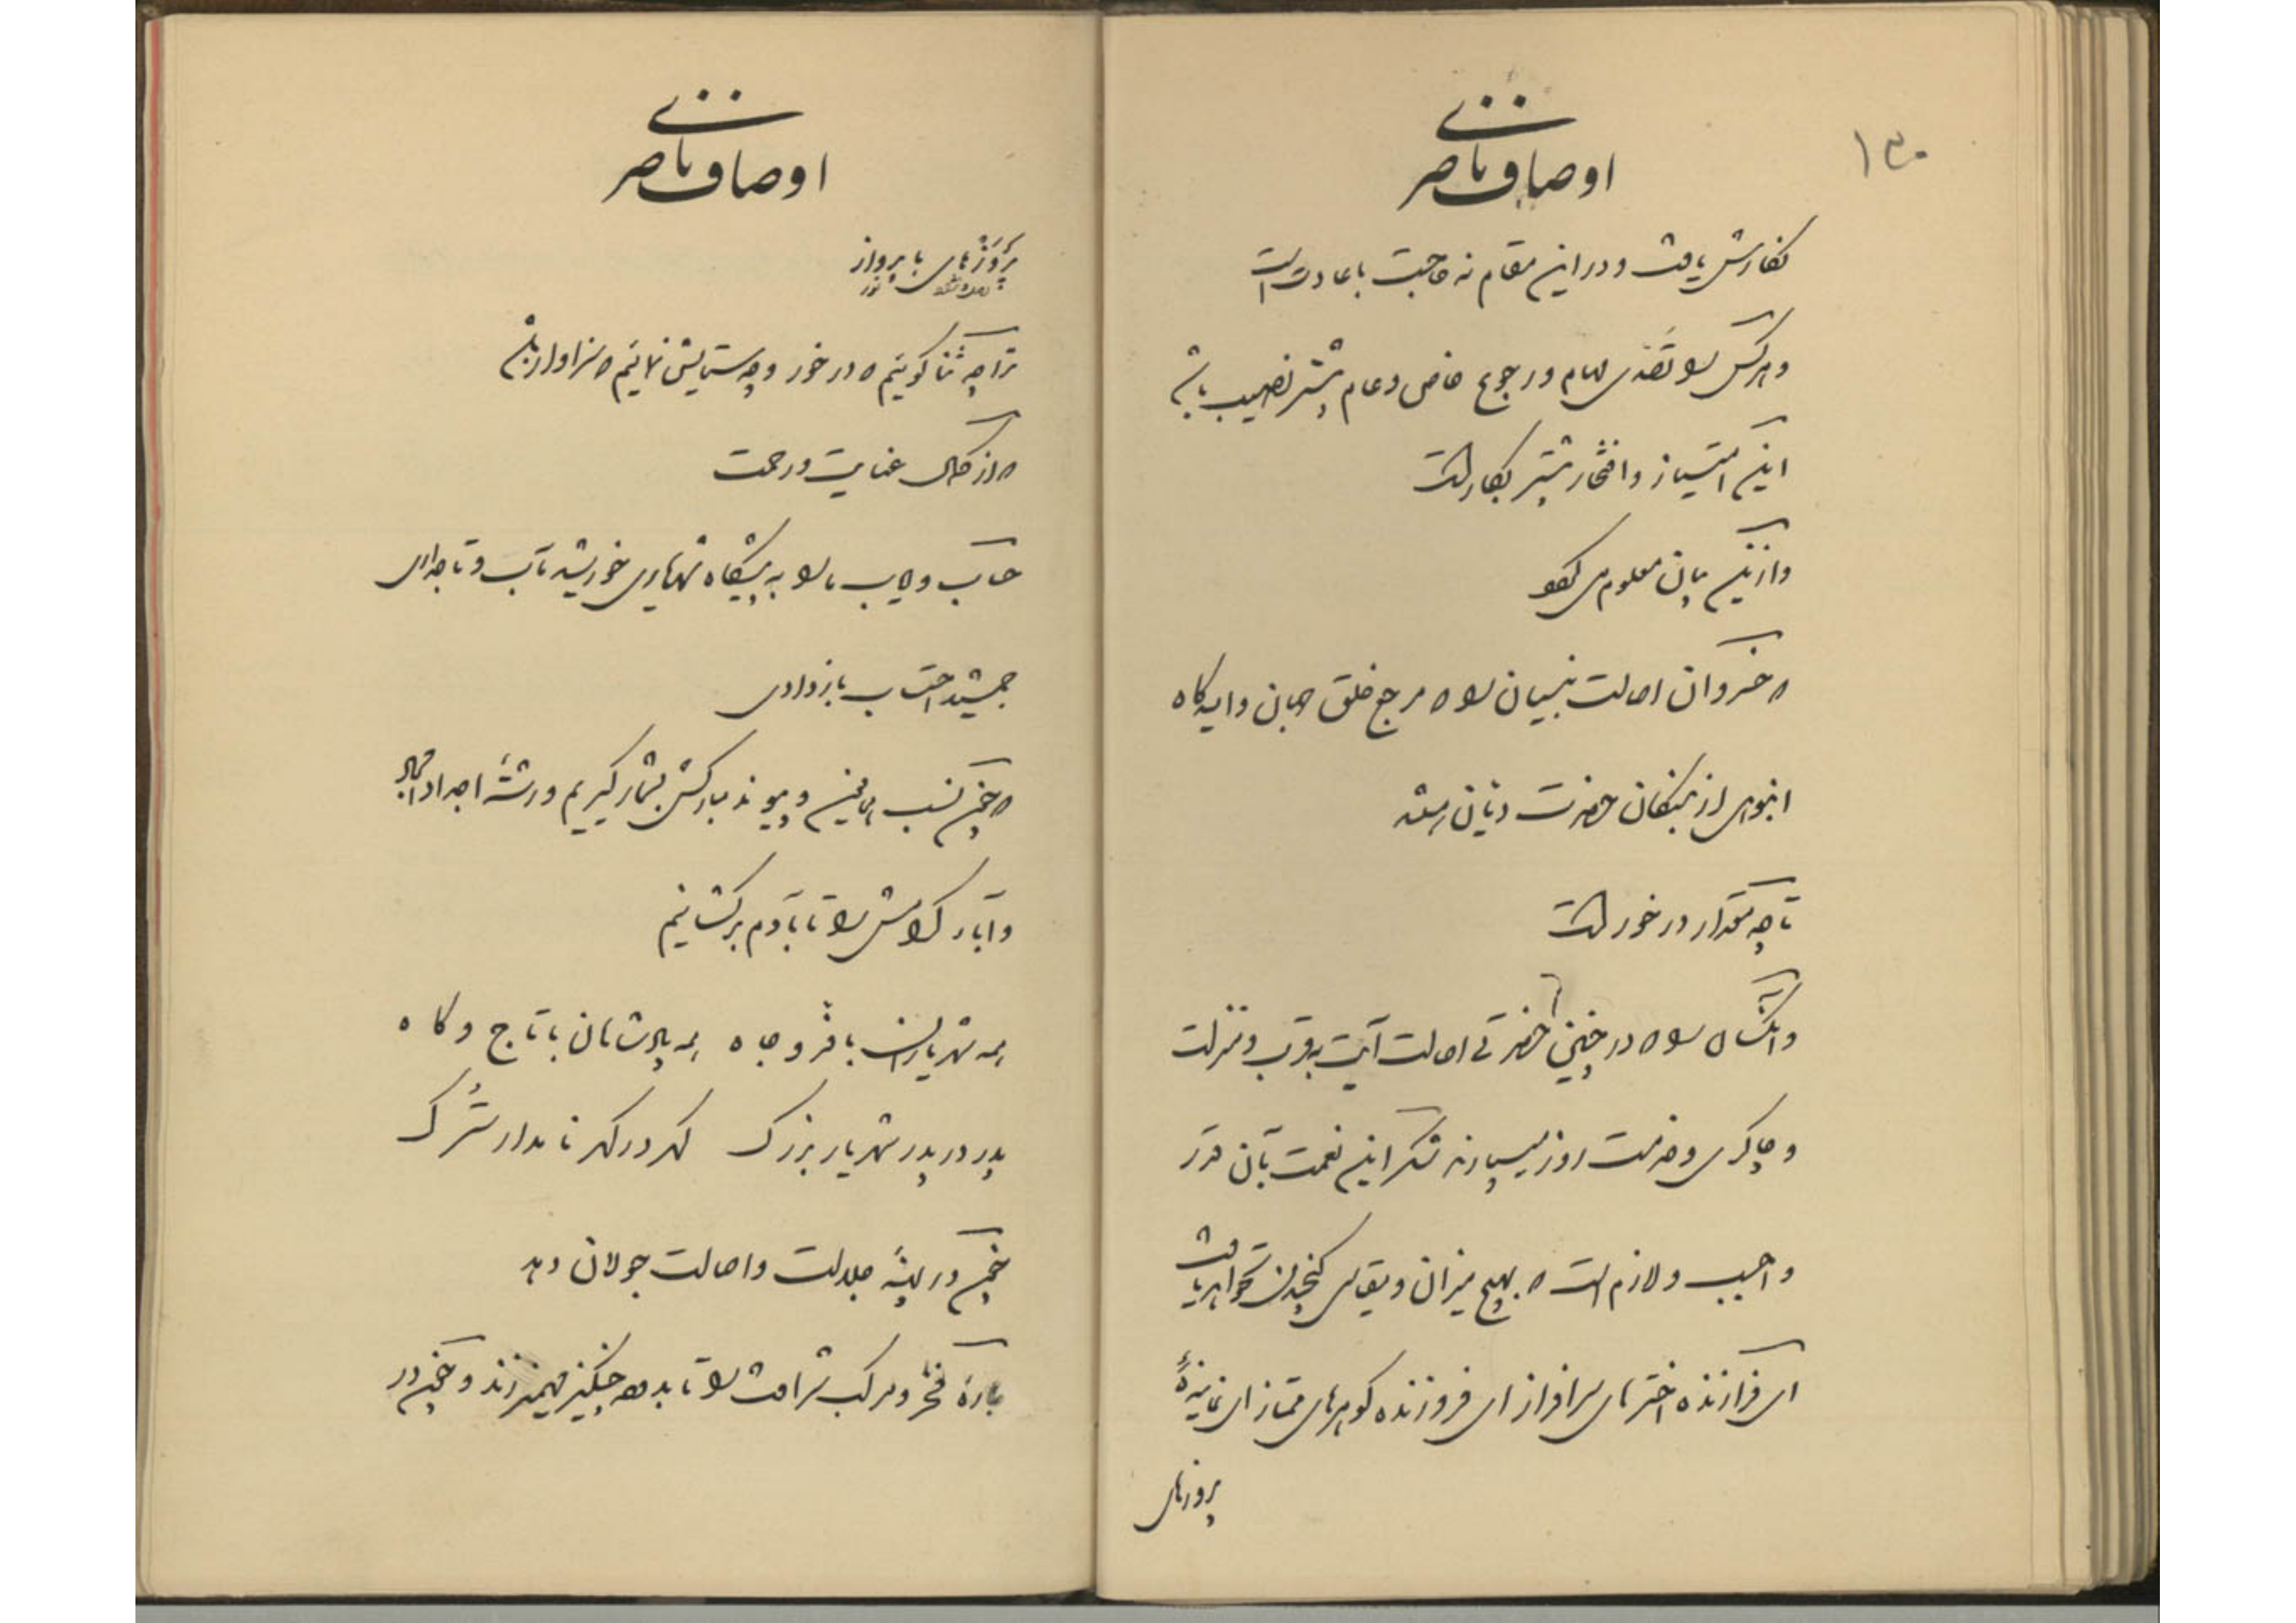 ۱۳۰
اوصاف ناصری
نگارش یافت و در این مقام نه حاجت باعادت است
و هر کس را تصدی مهام و رجوع خاص و عام بیشتر نصیب باشد
این امتیاز و افتخار بیشتر بکار است
و از این بیان معلوم می‌شود
که خسروان اصالت بنیان را که مرجع خلق جهان و
انبوهی از بندگان حضرت
تا چه مقدار در خور است
و آنکسان را که در چنین حضرتی اصالت آیت به قرب و منزلت
و چاکری و خدمت روز میسپارند شکر این نعمت بآن قدر
واجب و لازم است که بهیچ میزان و مقیاس گنجیدن نخواهد یافت
ای فرازنده اخترهای سرافراز ای فروزنده گوهرهای ممتاز ای نماینده
پروزهای
اوصاف ناصری
پروزهای با پرواز
ترا چه ثنا گوئیم که در خور و چه ستایش نمائیم که سزاوار باشد
که از کمال عنایت و رحمت
ما را به پیشگاه شهریاری خورشید تاب و تاجداری
جمشید احتساب بازدادی
که چون نسب و پیوند مبارکش بشمار گیریم و رشته اجداد
و آباء کرامش را تا بآدم برکشانیم
همه شهریاران با فر و جاه همه پادشاهان با تاج و گاه
پدر در پدر شهریار بزرگ گهر در گهر نامدار سترگ
چون در پهنه جلالت و اصالت جولان دهد
باره فخر و مرکب شرافت را تا بدوده چنگیز مهمیز زند و چون در